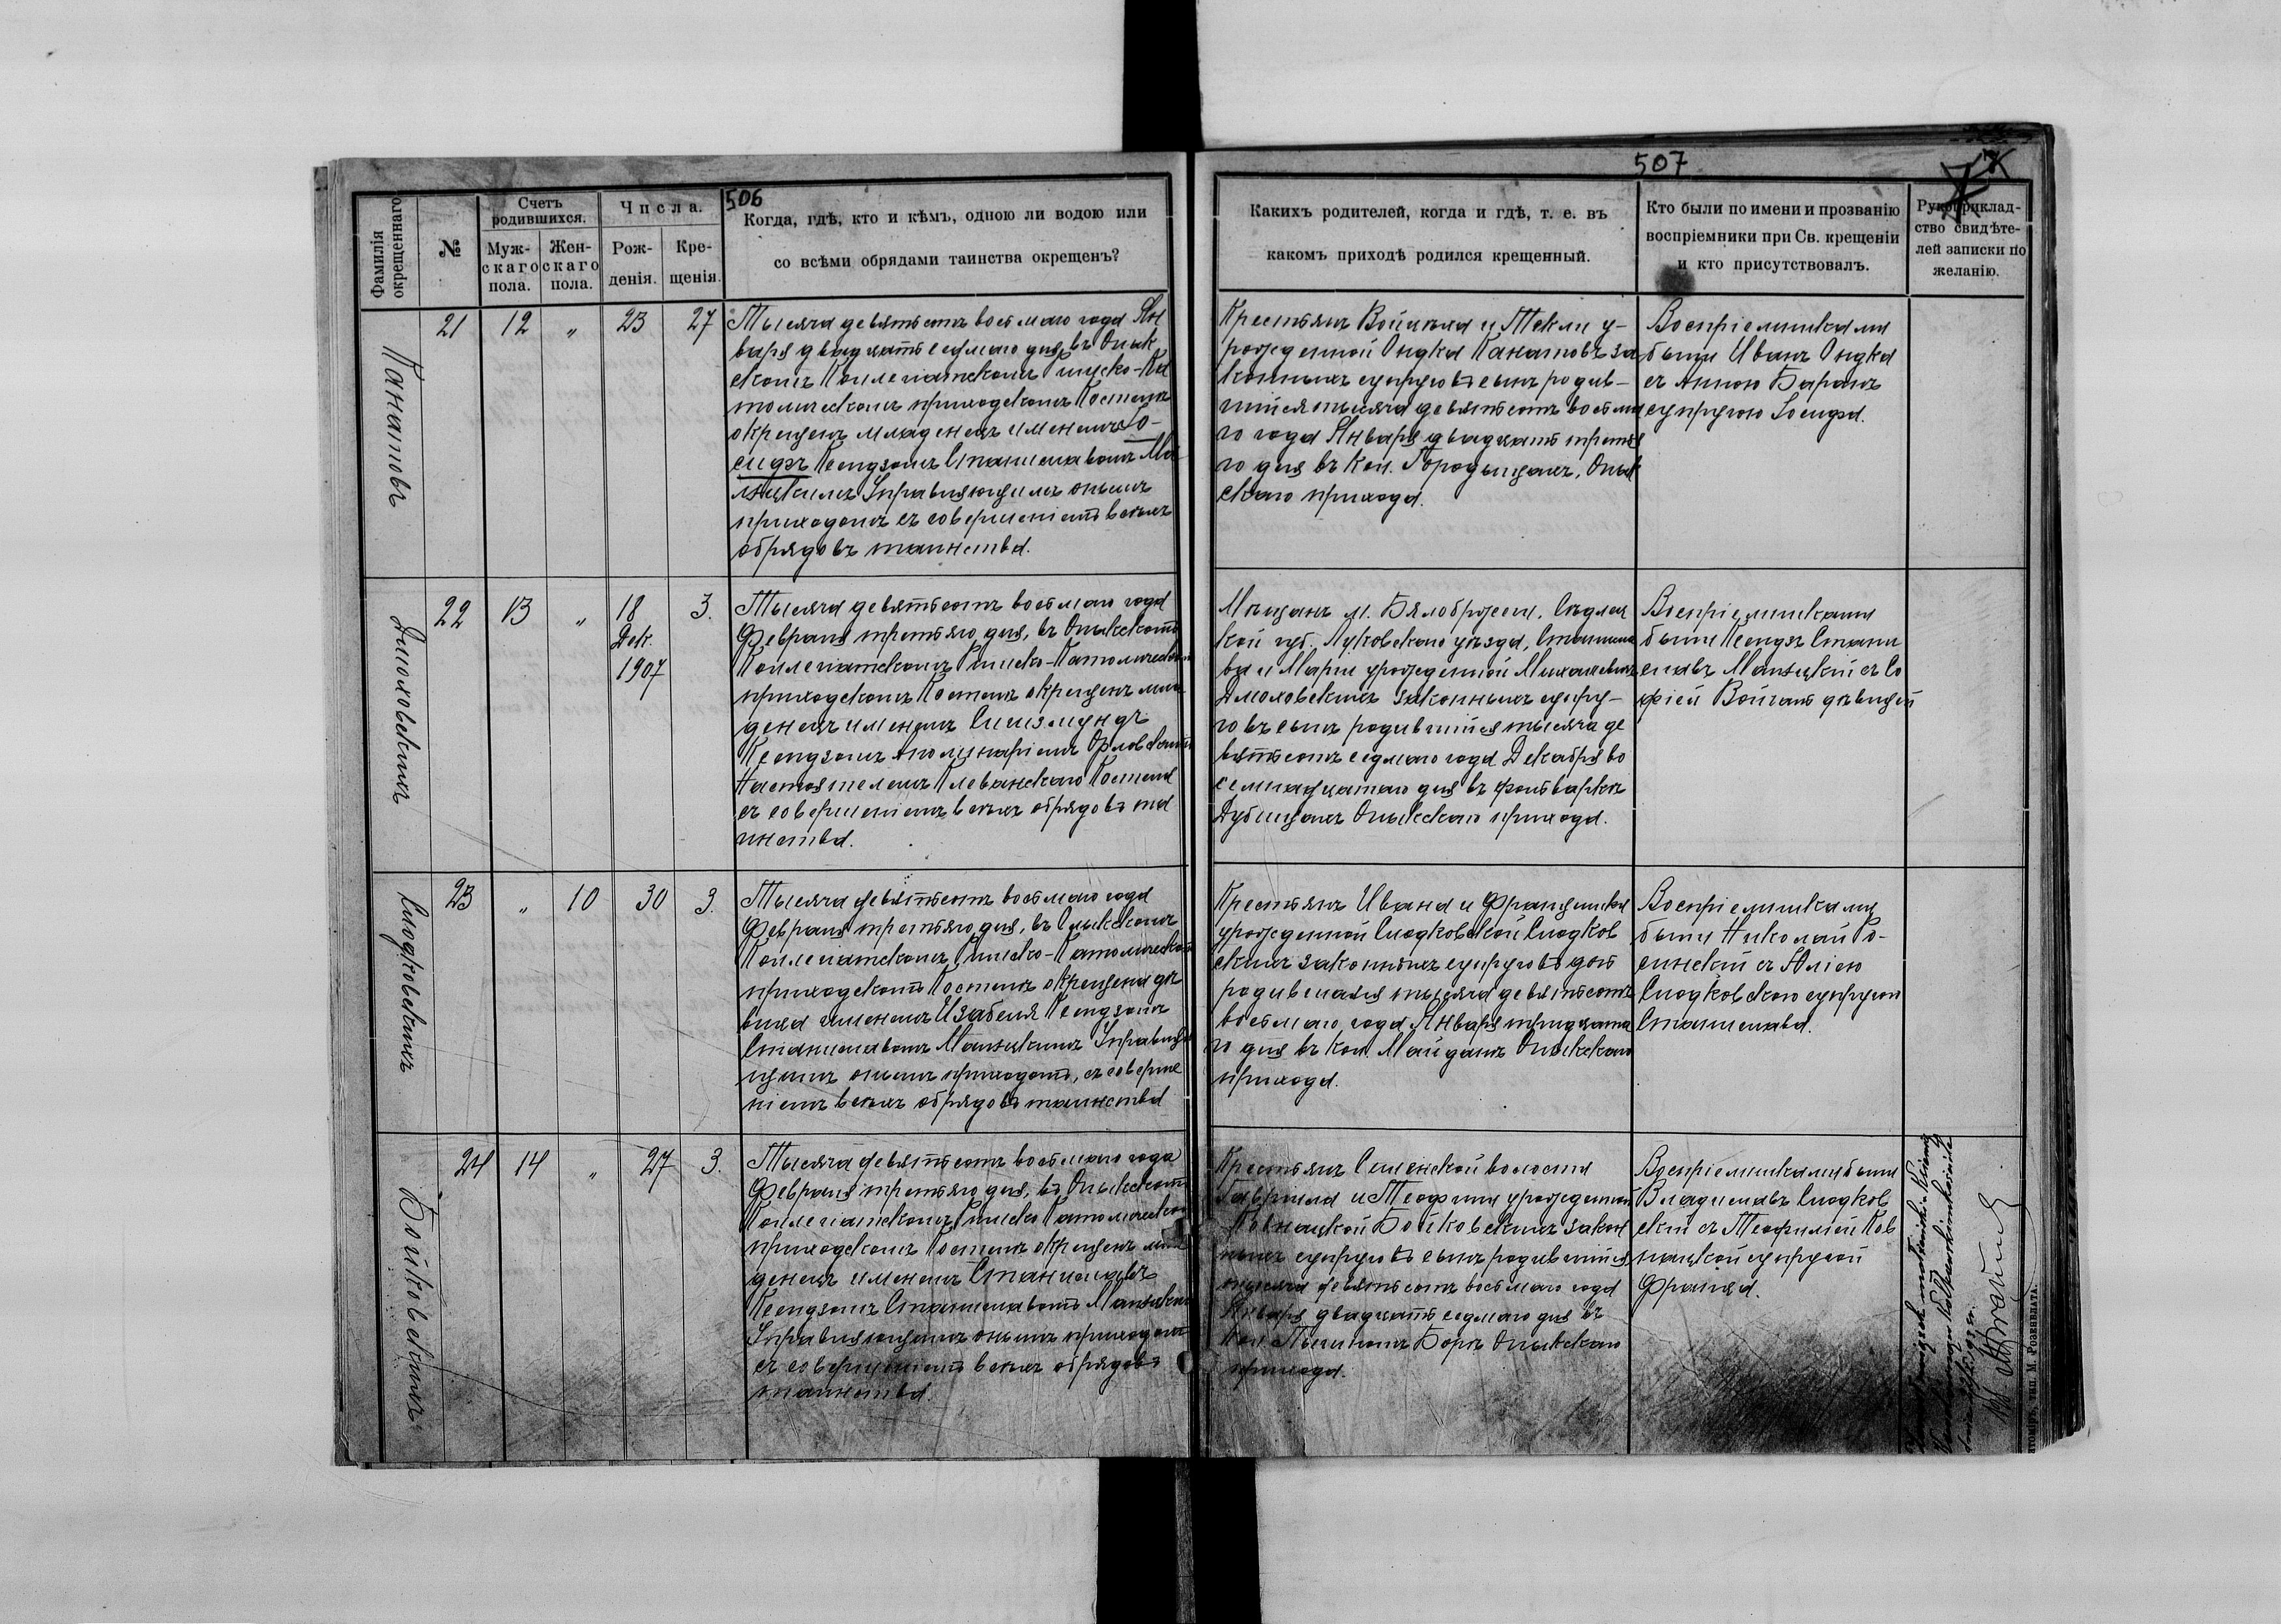 506
Фамилія окрещеннаго
№
Счетъ родившихся.
Мужскаго пола.
Женскаго пола.
Числа.
Рожденія.
Крещенія.
Когда, гдѣ, кто и кѣмъ, одною ли водою или
со всѣми обрядами таинства окрещенъ?
Канатовъ
21 12 „ 23 27
Тысяча девятьсотъ восьмаго года Ян
варя двадцать седьмаго дня, въ Олык
скомъ Коллегіатскомъ Римско-Ка
толическомъ приходскомъ Костелѣ
окрещенъ младенецъ именемъ Іо-
сифъ Ксендзомъ Станиславомъ Ма
нжицкимъ Управляющимъ онымъ
приходомъ съ совершеніемъ всѣхъ
обрядовъ таинства.
Дмоховскихъ
22 13 „ 18 Дек. 1907 3.
Тысяча девятьсотъ восьмаго года
Февраля третьяго дня, въ Олыкскомъ
Коллегіатскомъ Римско-Католическомъ
приходскомъ Костелѣ окрещенъ мла
денецъ именемъ Сигизмундъ
Ксендзомъ Аполинаріемъ Орловскимъ
Настоятелемъ Клеванскаго Костела
съ совершеніемъ всѣхъ обрядовъ та
инства.
Смодковскихъ
23 „ 10 30 3.
Тысяча девятьсотъ восьмаго года
Февраля третьяго дня, въ Олыкскомъ
Коллегіатскомъ Римско-Католическомъ
приходскомъ Костелѣ окрещена дѣ
вица именемъ Изабелля Ксендзомъ
Станиславомъ Манжицкимъ Управляю
щимъ онымъ приходомъ, съ соверше
ніемъ всѣхъ обрядовъ таинства
Бойковскихъ
24 14 „ 27 3.
Тысяча девятьсотъ восьмаго года
Февраля третьяго дня, въ Олыкскомъ
Коллегіатскомъ Римско Католическомъ
приходскомъ Костелѣ окрещенъ мла
денецъ именемъ Станиславъ
Ксендзомъ Станиславомъ
Управляющимъ онымъ приходомъ
съ совершеніемъ всѣхъ обрядовъ
таинства.
507
Какихъ родителей, когда и гдѣ, т. е. въ
какомъ приходѣ родился крещенный.
Кто были по имени и прозванію
воспріемники при Св. крещеніи
и кто присутствовалъ.
Рукоприклад-
ство свидѣте-
лей записки по
желанію.
Крестьянъ Войцѣха и Текли у-
рожденной Ондка Канатовъ за
конныхъ супруговъ сынъ родив-
шійся тысяча девятьсотъ восьма
го года Января двадцать третья
го дня въ кол. Городыщахъ, Олык
скаго прихода.
Воспріемниками
были Иванъ Ондка
съ Анною Баранъ
супругою Іосифа.
Мѣщанъ м. Бялобржеги, Сѣдлец
кой губ. Луковскаго уѣзда, Станисла
ва и Маріи урожденной
Дмоховскихъ законныхъ супру-
говъ сынъ родившійся тысяча де
вятьсотъ седьмаго года Декабря во
семнадцатаго дня въ фольваркѣ
Дубищахъ Олыкскаго прихода.
Воспріемниками
были Ксендзъ Стани
славъ Манжицкій съ Со
фіей дѣвицей
Крестьянъ Ивана и Францишки
урожденной Смодковской Смодков
скихъ законныхъ супруговъ дочь
родившаяся тысяча девятьсотъ
восьмаго года Января тридцата
го дня въ кол. Майданѣ Олыкскаго
прихода.
Воспріемниками
были Николай Ро-
синскій съ Юліею
Смодковскою супругою
Станислава.
Крестьянъ волости
Гавріила и Теофили урожденной
Ковнацкой Бойковскихъ закон
ныхъ супруговъ сынъ родившійся
тысяча девятьсотъ восьмаго года
Января двадцать седьмаго дня въ
кол. Борѣ Олыкскаго
прихода.
Воспріемниками были
Владиславъ Смодков
скій съ Теофиліей Ков
нацкой супругой
Франца.
тип. М. Розенблата.